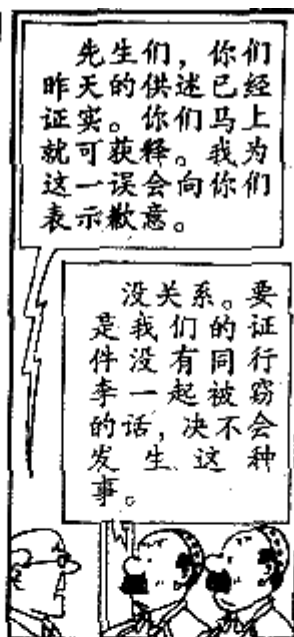 先生们，你们
昨天的供述已经
证实。你们马上
就可获释。我为
这一误会向你们
表示歉意。
没关系。要
是我们的证
件没有同行
李一起被窃
的话，决不会
发生这种
事。